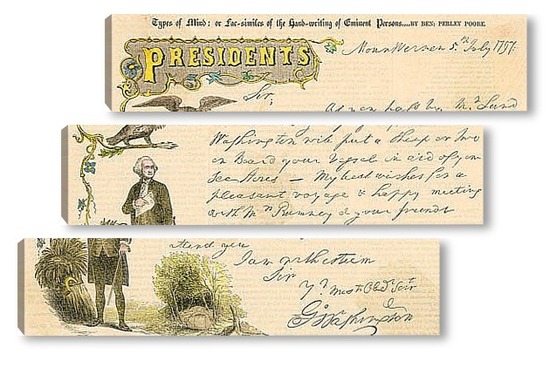 Types of Mind: or Fac-similes of the Hand-writing of Eminent Persons.....BY BEN: PERLEY POORE.
PRESIDENTS
Mount Vernon 5th July 1797.
Sir,
by Mr. Lund
Washington will put a Sheep or two
on Board your Vessel in aid of your
Sea Stores — My best wishes for a
pleasant voyage & happy meeting
with Mrs Rumney & your friends
attend you
I am with esteem
Sir
Yr most Obedt Servt
Go Washington